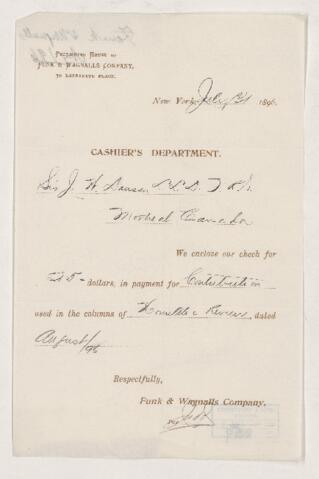 Funk & Wagnalls
Publishing House of
FUNK & WAGNALLS COMPANY,
30 LAFAYETTE PLACE.
New York, July 1896
CASHIER'S DEPARTMENT.
Sir J. W. Dawson L.L.D.
Montreal Canada
We enclose our check for
dollars, in payment for Contribution
used in the columns of Homiletic Review, dated
August/96
Respectfully,
Funk & Wagnalls Company.
per